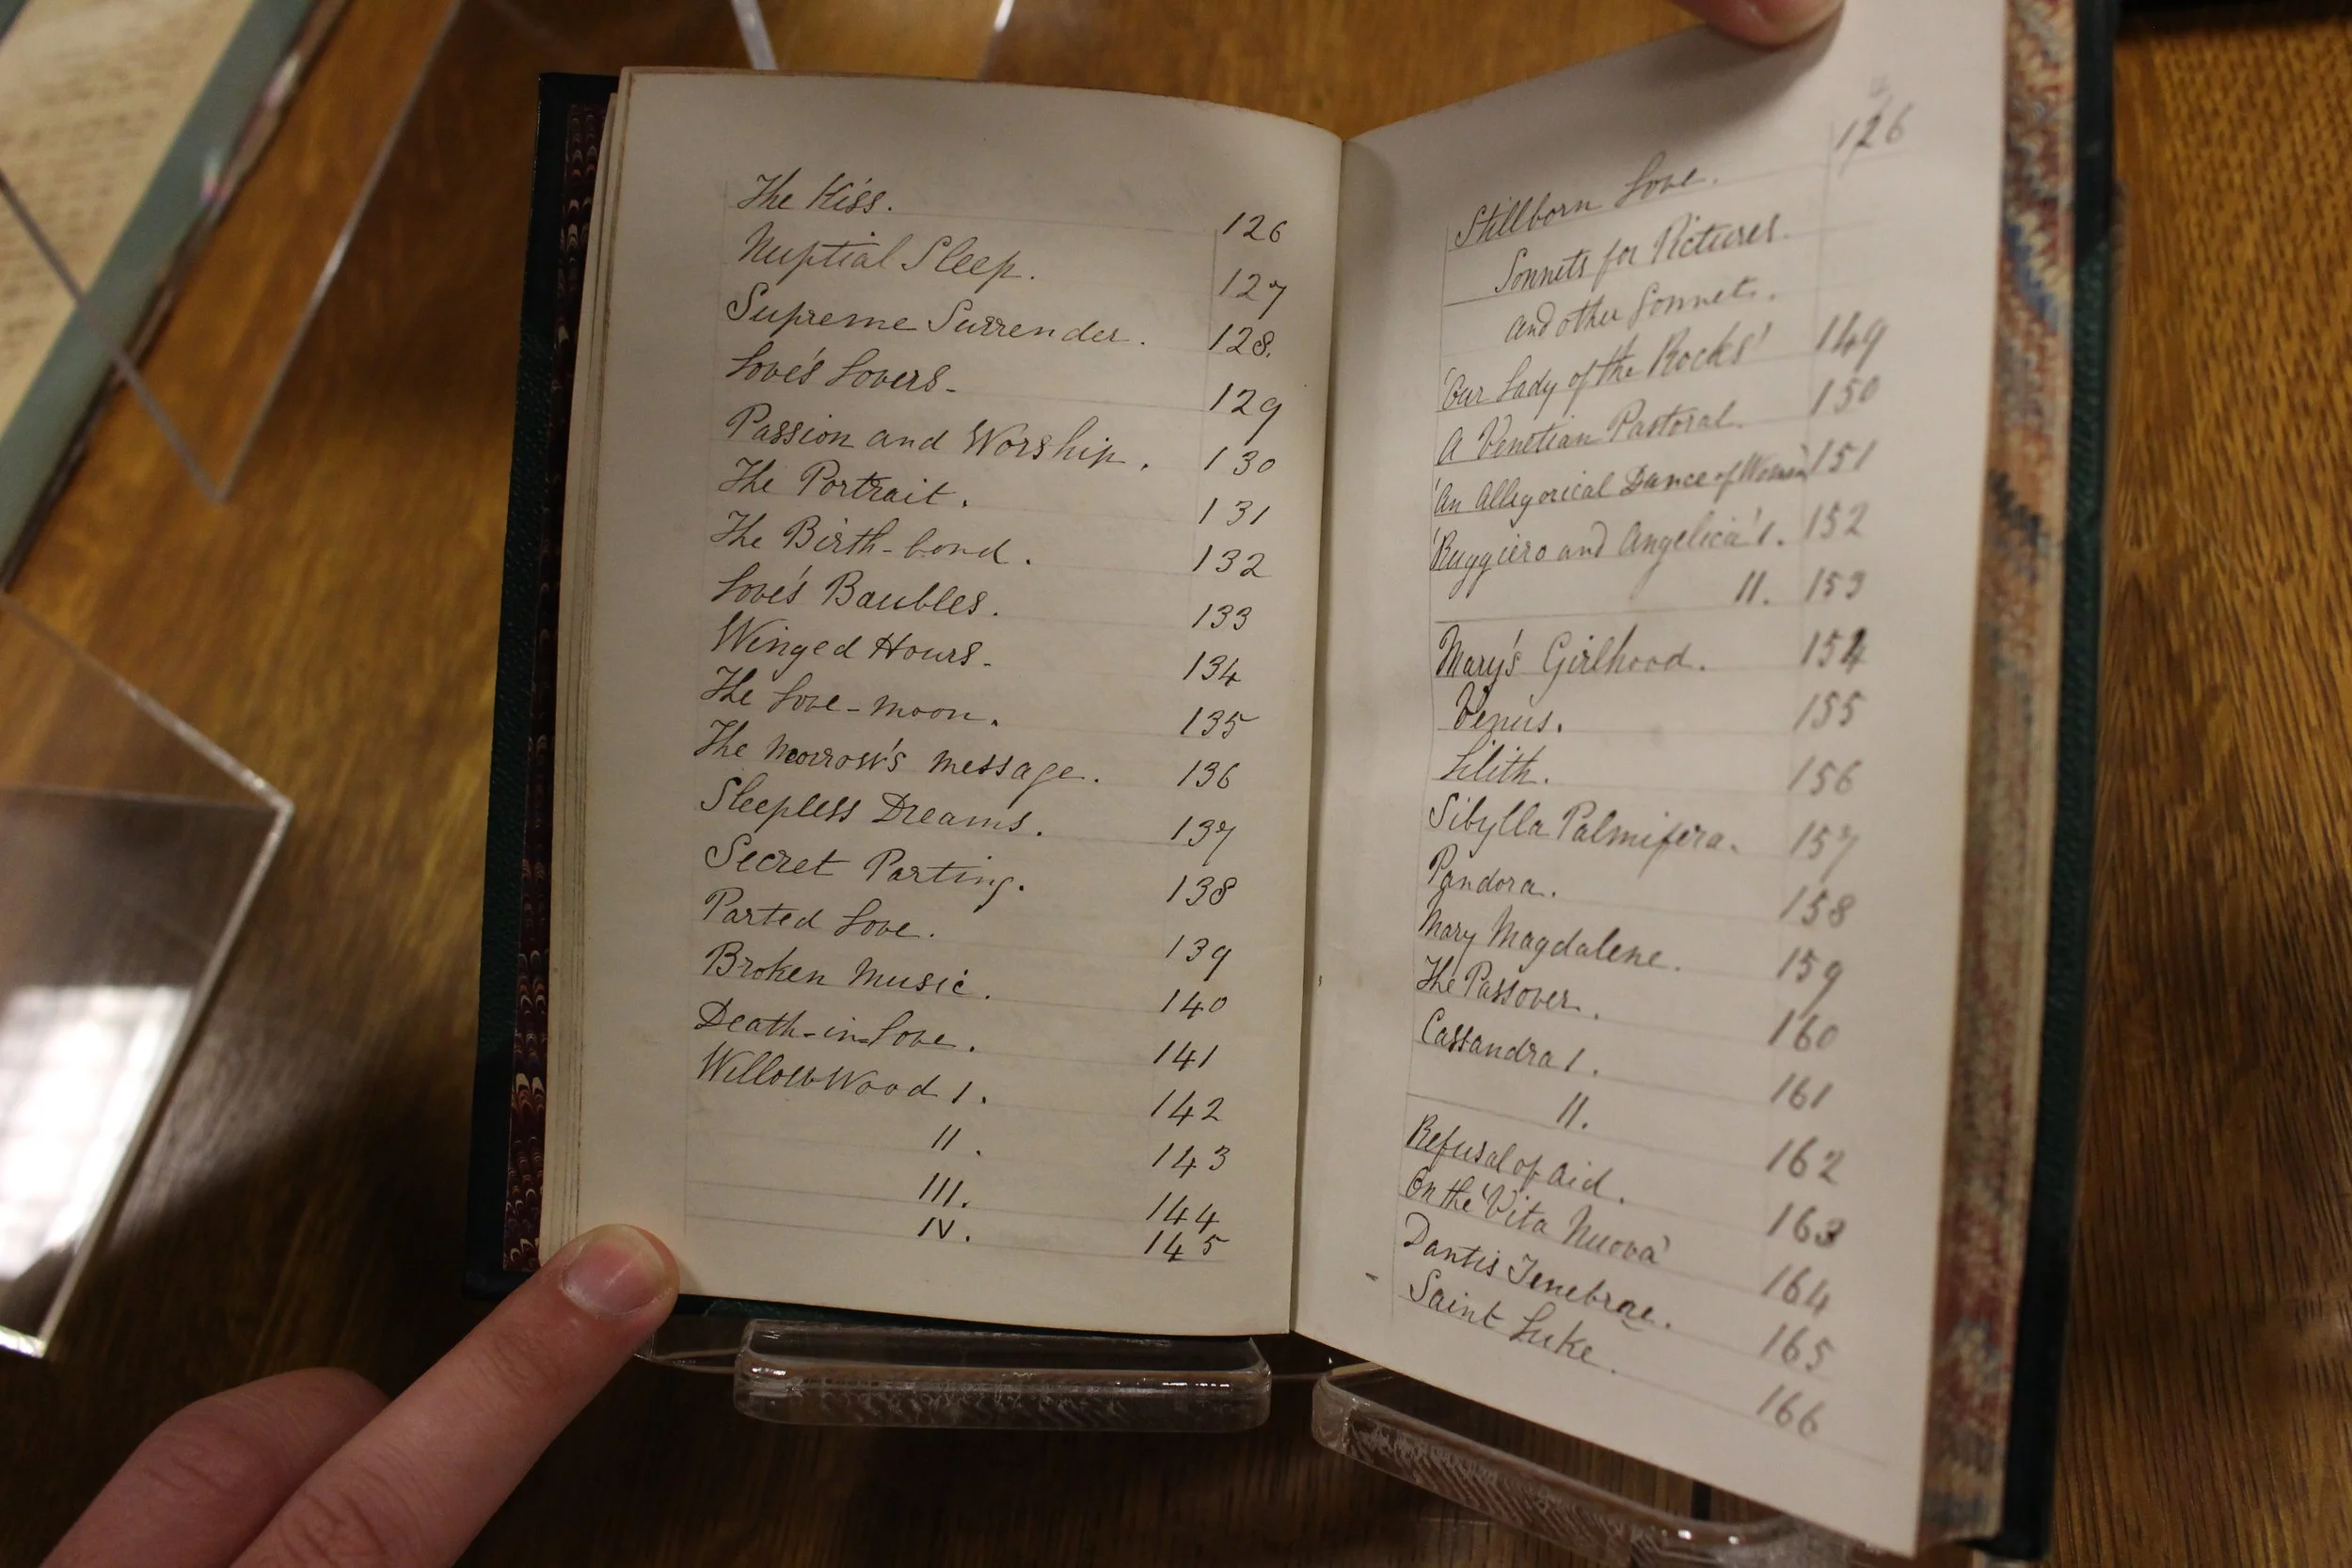 The Kiss. 126
Nuptial Sleep. 127
Supreme Surrender. 128.
Love's Lovers- 129
Passion and Worship. 130
The Portrait. 131
The Birth-bond. 132
Love's Baubles. 133
Winged Hours- 134
The Love-moon. 135
The Morrow's Message. 136
Sleepless Dreams. 137
Secret Parting. 138
Parted Love. 139
Broken Music. 140
Death-in-Love. 141
WillowWood I. 142
II. 143
III. 144
IV. 145
Stillborn Love. 126
Sonnets for Pictures.
and other Sonnets.
'Our Lady of the Rocks' 149
A Venetian Pastoral. 150
'An Allegorical Dance of Women' 151
'Ruggiero and Angelica' I. 152
II. 153
Mary's Girlhood. 154
Venus. 155
Lilith. 156
Sibylla Palmifera. 157
Pandora. 158
Mary Magdalene. 159
The Passover. 160
Cassandra I. 161
II. 162
Refusal of Aid. 163
On the 'Vita Nuova' 164
Dantis Tenebrae. 165
Saint Luke. 166